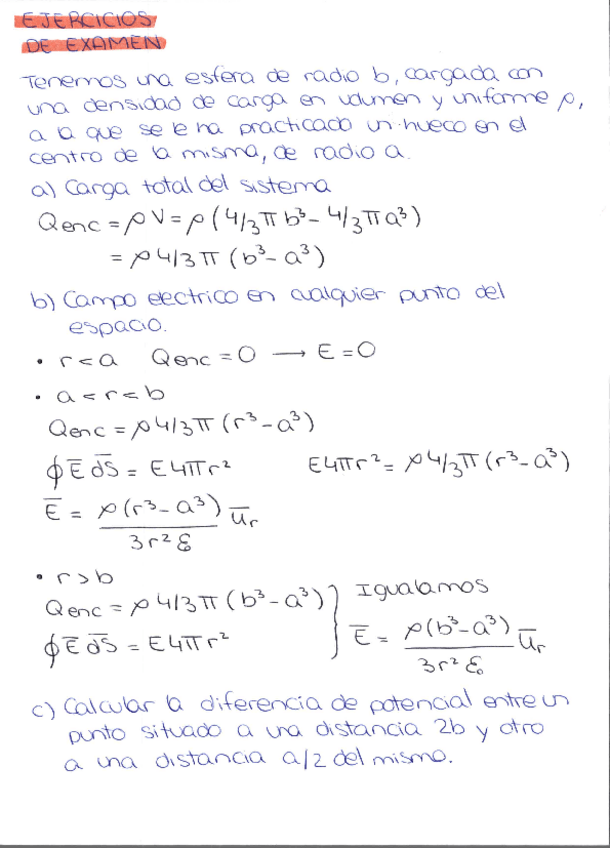 EJERCICIOS
DE EXAMEN
Tenemos una esfera de radio b, cargada con
una densidad de carga en volumen y uniforme ρ,
a la que se le ha practicado un hueco en el
centro de la misma, de radio a.
a) Carga total del sistema
Qenc = ρ V = ρ (4/3 π b³ - 4/3 π a³)
= ρ 4/3 π (b³ - a³)
b) Campo electrico en cualquier punto del
espacio.
• r < a Qenc = 0 → E = 0
• a < r < b
Qenc = ρ 4/3 π (r³ - a³)
∮ E̅ dS̅ = E4πr² E4πr² = ρ 4/3 π (r³ - a³)
E̅ = ρ (r³ - a³) / 3r² ε₀ u̅r
• r > b
Qenc = ρ 4/3 π (b³ - a³) } Igualamos
∮ E̅ dS̅ = E4πr² E̅ = ρ(b³ - a³) / 3r² ε₀ u̅r
c) Calcular la diferencia de potencial entre un
punto situado a una distancia 2b y otro
a una distancia a/2 del mismo.